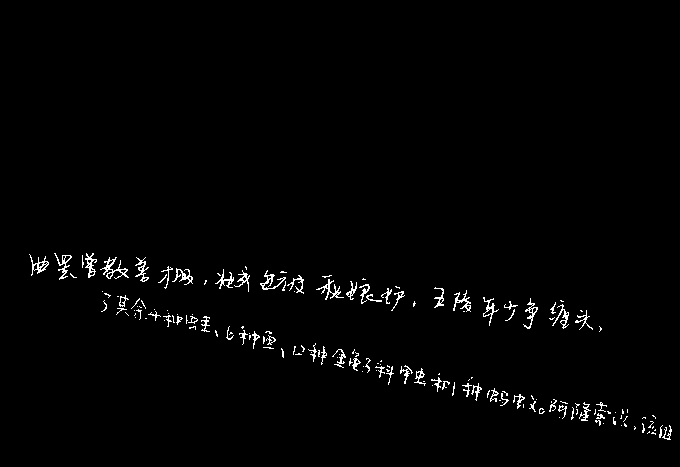 曲罢曾教善才服,妆成每被秋娘妒,五陵年少争缠头,
了其余4种蛀、6种蚕、12种金龟子科甲虫和1种蚂蚁。阿隆索说,该